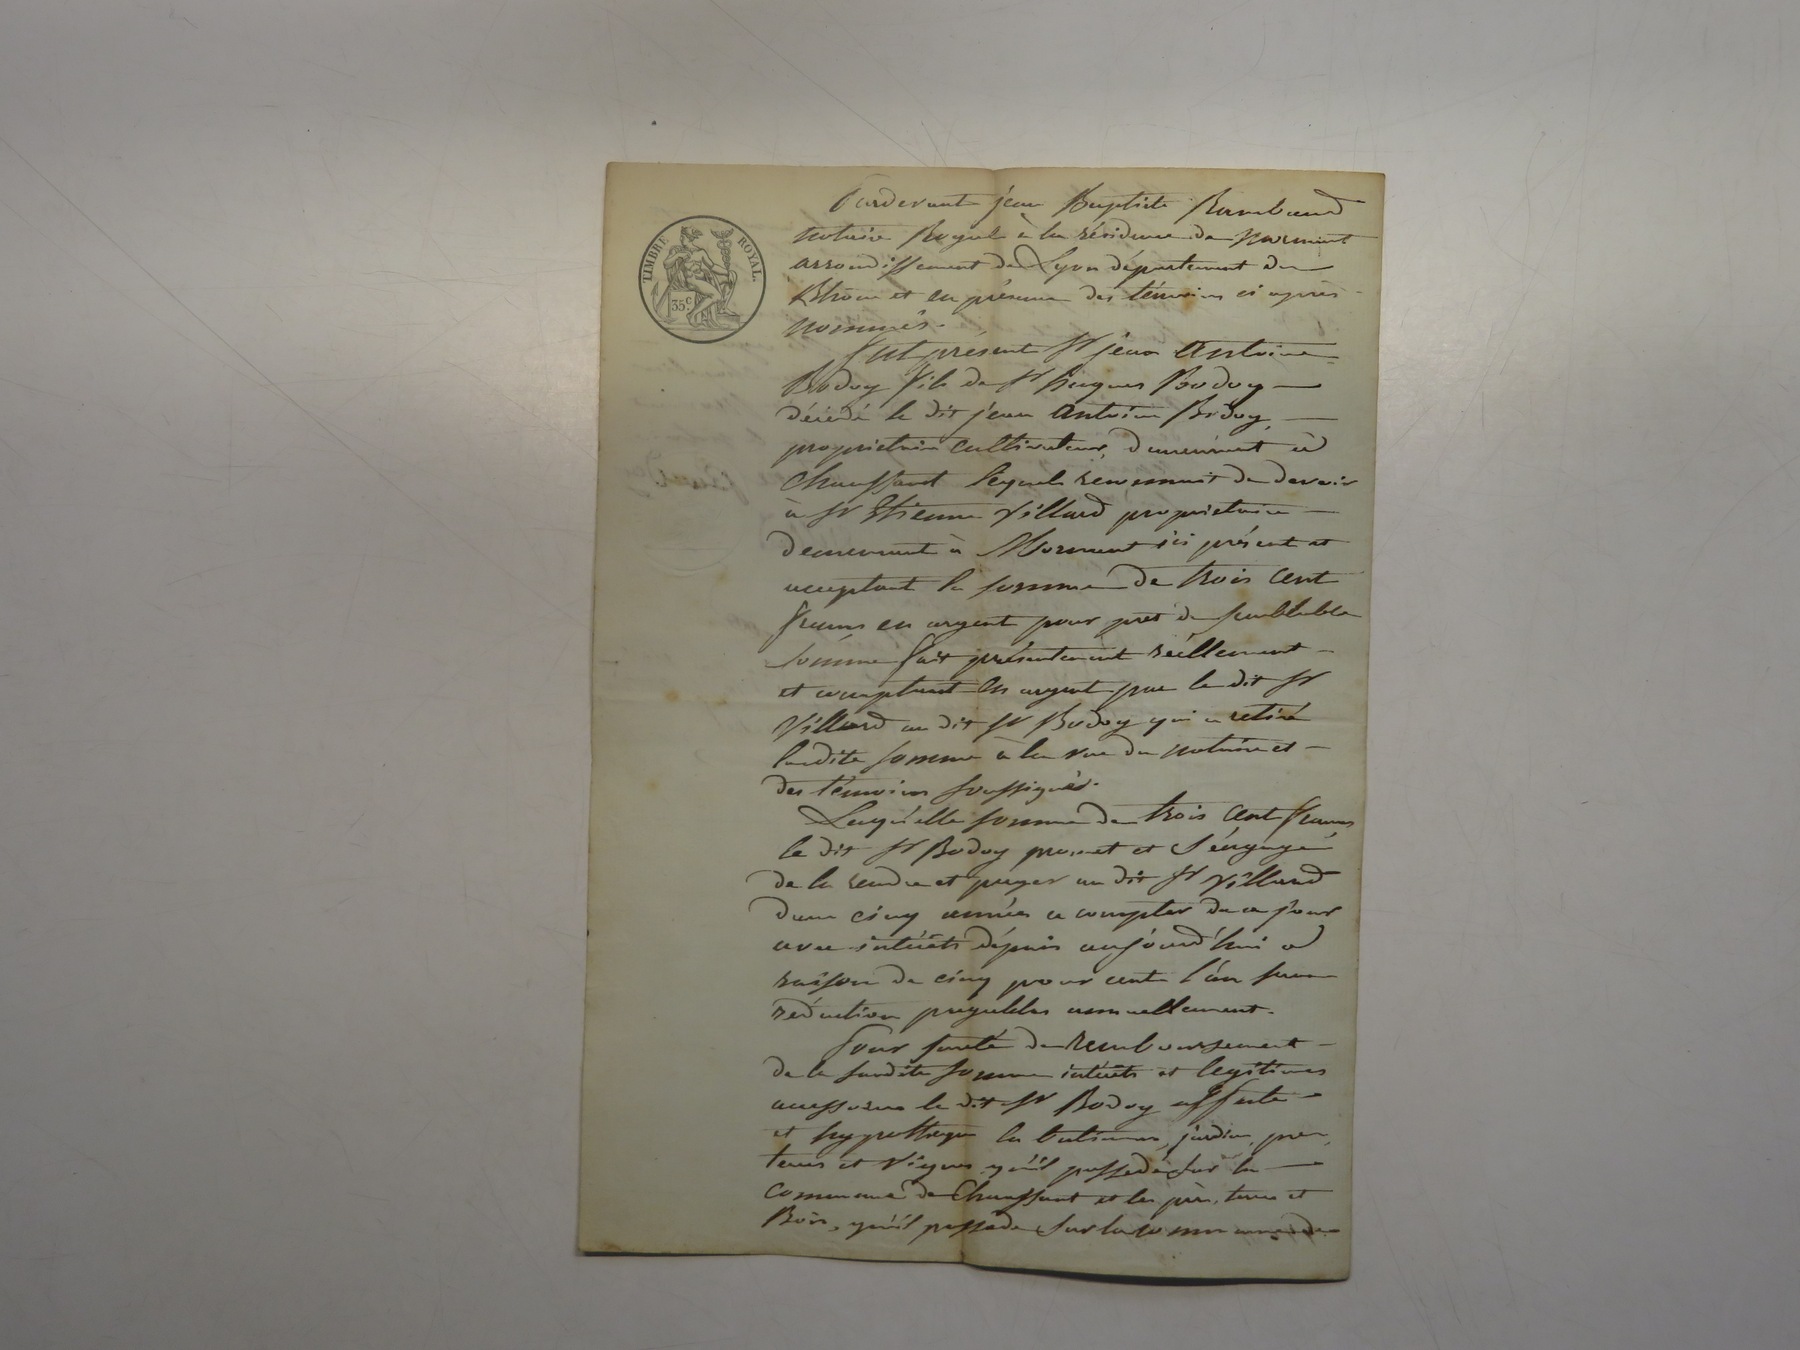 TIMBRE ROYAL.
35.c
Pardevant jean Baptiste Rambaud
notaire Royal à la résidence de Mornant
arrondissement de Lyon département du
Rhône et en présence des témoins ci après
nommés.
fut présent Sr jean Antoine
Bodoy fils de Sr Jacques Bodoy
décédé le dit jean Antoine Bodoy,
propriétaire cultivateur, demeurant à
Chaussant lequel reconnait de devoir
à Sr Etienne Villard propriétaire
demeurant à Mornant ici présent et
acceptant la somme de trois cent
francs en argent pour prêt de semblable
somme fait présentement réellement
et comptant en argent par le dit Sr
Villard au dit Sr Bodoy qui a retiré
ladite somme à la vue du notaire et
des témoins soussignés.
Laquelle somme de trois cent francs
le dit Sr Bodoy promet et s'engage
de la rendre et payer au dit Sr Villard
dans cinq années a compter de ce jour
avec intérêts dépuis aujourd'hui a
raison de cinq pour cent l'an sans
réduction payables annuellement.
Pour sureté du remboursement
de la susdite somme intérêts et legitimes
accessoires le dit Sr Bodoy affecte
et hypothèque les batimens, jardin, prés,
terres et vignes qu'il possède sur la
commune de Chaussant et les prés, terres et
Bois, qu'il possède sur la commune de